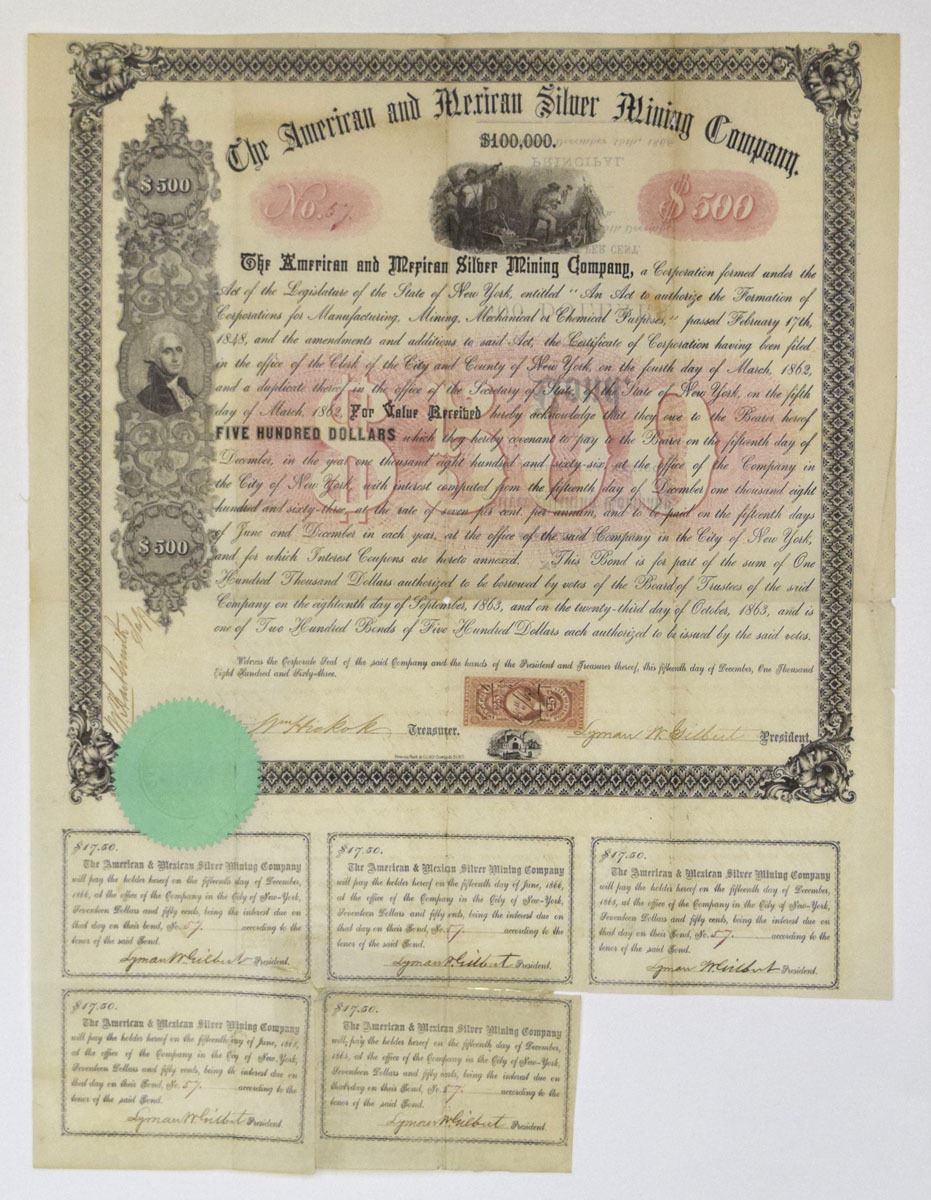 The American and Mexican Silver Mining Company.
$100,000.
$500
No. 57.
$500
The American and Mexican Silver Mining Company, a Corporation formed under the
Act of the Legislature of the State of New York, entitled "An Act to authorize the Formation of
Corporations for Manufacturing, Mining, Mechanical or Chemical Purposes," passed February 17th,
1848, and the amendments and additions to said Act; the Certificate of Corporation having been filed
in the office of the Clerk of the City and County of New York, on the fourth day of March, 1862,
and a duplicate thereof in the office of the Secretary of State of the State of New York, on the fifth
day of March, 1862. For Value Received hereby acknowledge that they owe to the Bearer hereof
FIVE HUNDRED DOLLARS which they hereby covenant to pay to the Bearer on the fifteenth day of
December, in the year one thousand eight hundred and sixty-six, at the office of the Company in
the City of New York, with interest computed from the fifteenth day of December one thousand eight
hundred and sixty-three, at the rate of seven per cent. per annum, and to be paid on the fifteenth days
of June and December in each year, at the office of the said Company in the City of New York,
and for which Interest Coupons are hereto annexed. This Bond is for part of the sum of One
Hundred Thousand Dollars authorized to be borrowed by votes of the Board of Trustees of the said
Company on the eighteenth day of September, 1863, and on the twenty-third day of October, 1863, and is
one of Two Hundred Bonds of Five Hundred Dollars each authorized to be issued by the said votes.
$500
$500
Witness the Corporate Seal of the said Company and the hands of the President and Treasurer thereof, this fifteenth day of December, One Thousand
Eight Hundred and Sixty-three.
Wm Hickok Treasurer.
Lyman W. Gilbert President.
$17.50.
The American & Mexican Silver Mining Company
will pay the holder hereof on the fifteenth day of December,
1866, at the office of the Company in the City of New-York,
Seventeen Dollars and fifty cents, being the interest due on
that day on their bond, No. 57. according to the
tenor of the said Bond.
Lyman W. Gilbert President.
$17.50.
The American & Mexican Silver Mining Company
will pay the holder hereof on the fifteenth day of June, 1866,
at the office of the Company in the City of New-York,
Seventeen Dollars and fifty cents, being the interest due on
that day on their Bond, No. 57. according to the
tenor of the said Bond.
Lyman W. Gilbert President.
$17.50.
The American & Mexican Silver Mining Company
will pay the holder hereof on the fifteenth day of December,
1865, at the office of the Company in the City of New-York,
Seventeen Dollars and fifty cents, being the interest due on
that day on their bond, No. 57. according to the
tenor of the said Bond.
Lyman W. Gilbert President.
$17.50.
The American & Mexican Silver Mining Company
will pay the holder hereof on the fifteenth day of June, 1865,
at the office of the Company in the City of New-York,
Seventeen Dollars and fifty cents, being the interest due on
that day on their Bond, No. 57. according to the
tenor of the said Bond.
Lyman W. Gilbert President.
$17.50.
The American & Mexican Silver Mining Company
will pay the holder hereof on the fifteenth day of December,
1864, at the office of the Company in the City of New-York,
Seventeen Dollars and fifty cents, being the interest due on
that day on their Bond, No. 57. according to the
tenor of the said Bond.
Lyman W. Gilbert President.